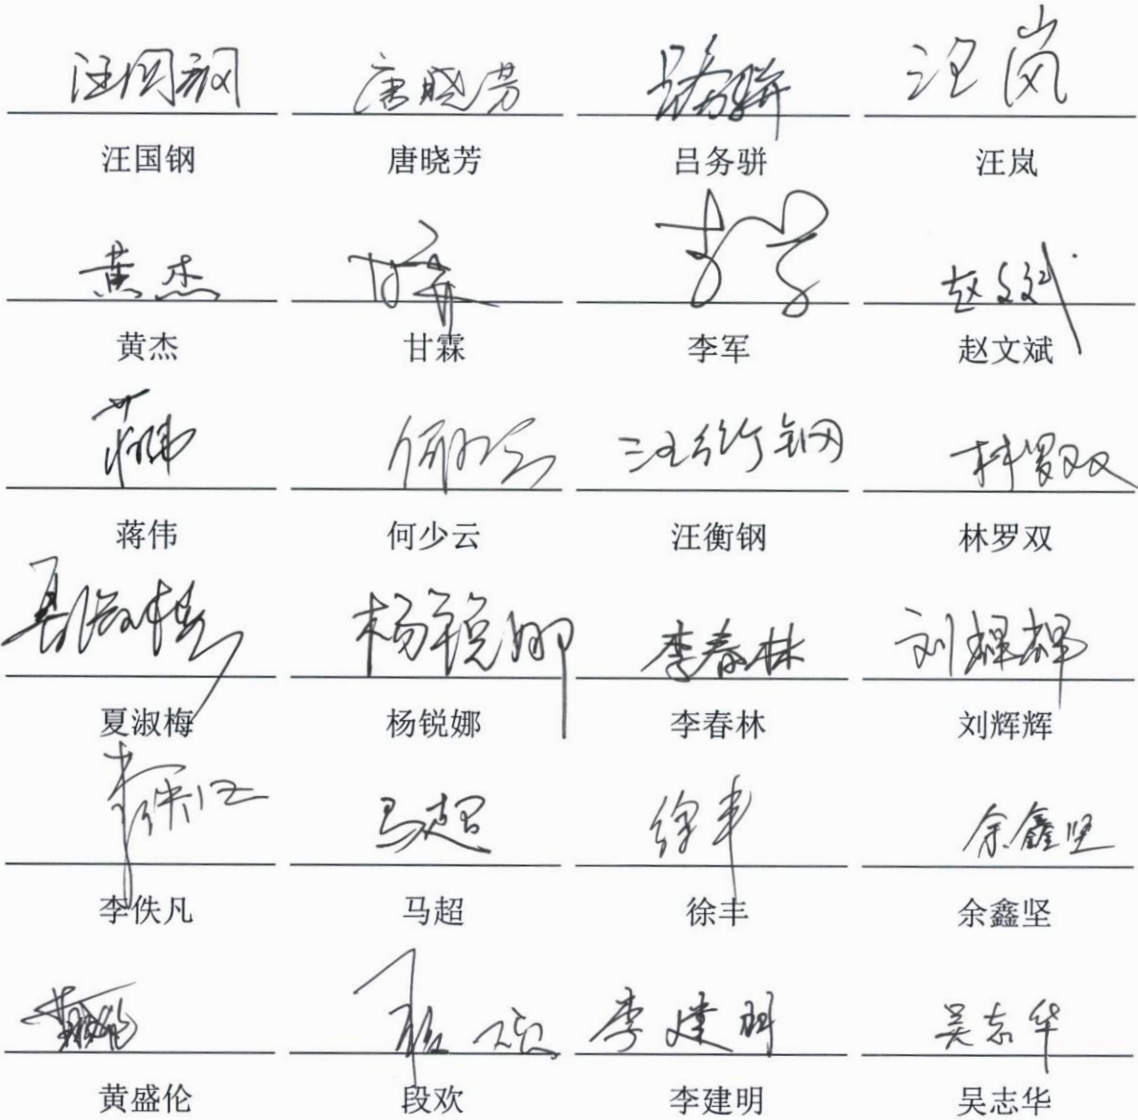 汪国钢 唐晓芳 吕务骈 汪岚
汪国钢 唐晓芳 吕务骈 汪岚
黄杰 甘霖 李军 赵文斌
黄杰 甘霖 李军 赵文斌
蒋伟 何少云 汪衡钢 林罗双
蒋伟 何少云 汪衡钢 林罗双
夏淑梅 杨锐娜 李春林 刘辉辉
夏淑梅 杨锐娜 李春林 刘辉辉
李佚凡 马超 徐丰 余鑫坚
李佚凡 马超 徐丰 余鑫坚
黄盛伦 段欢 李建明 吴志华
黄盛伦 段欢 李建明 吴志华